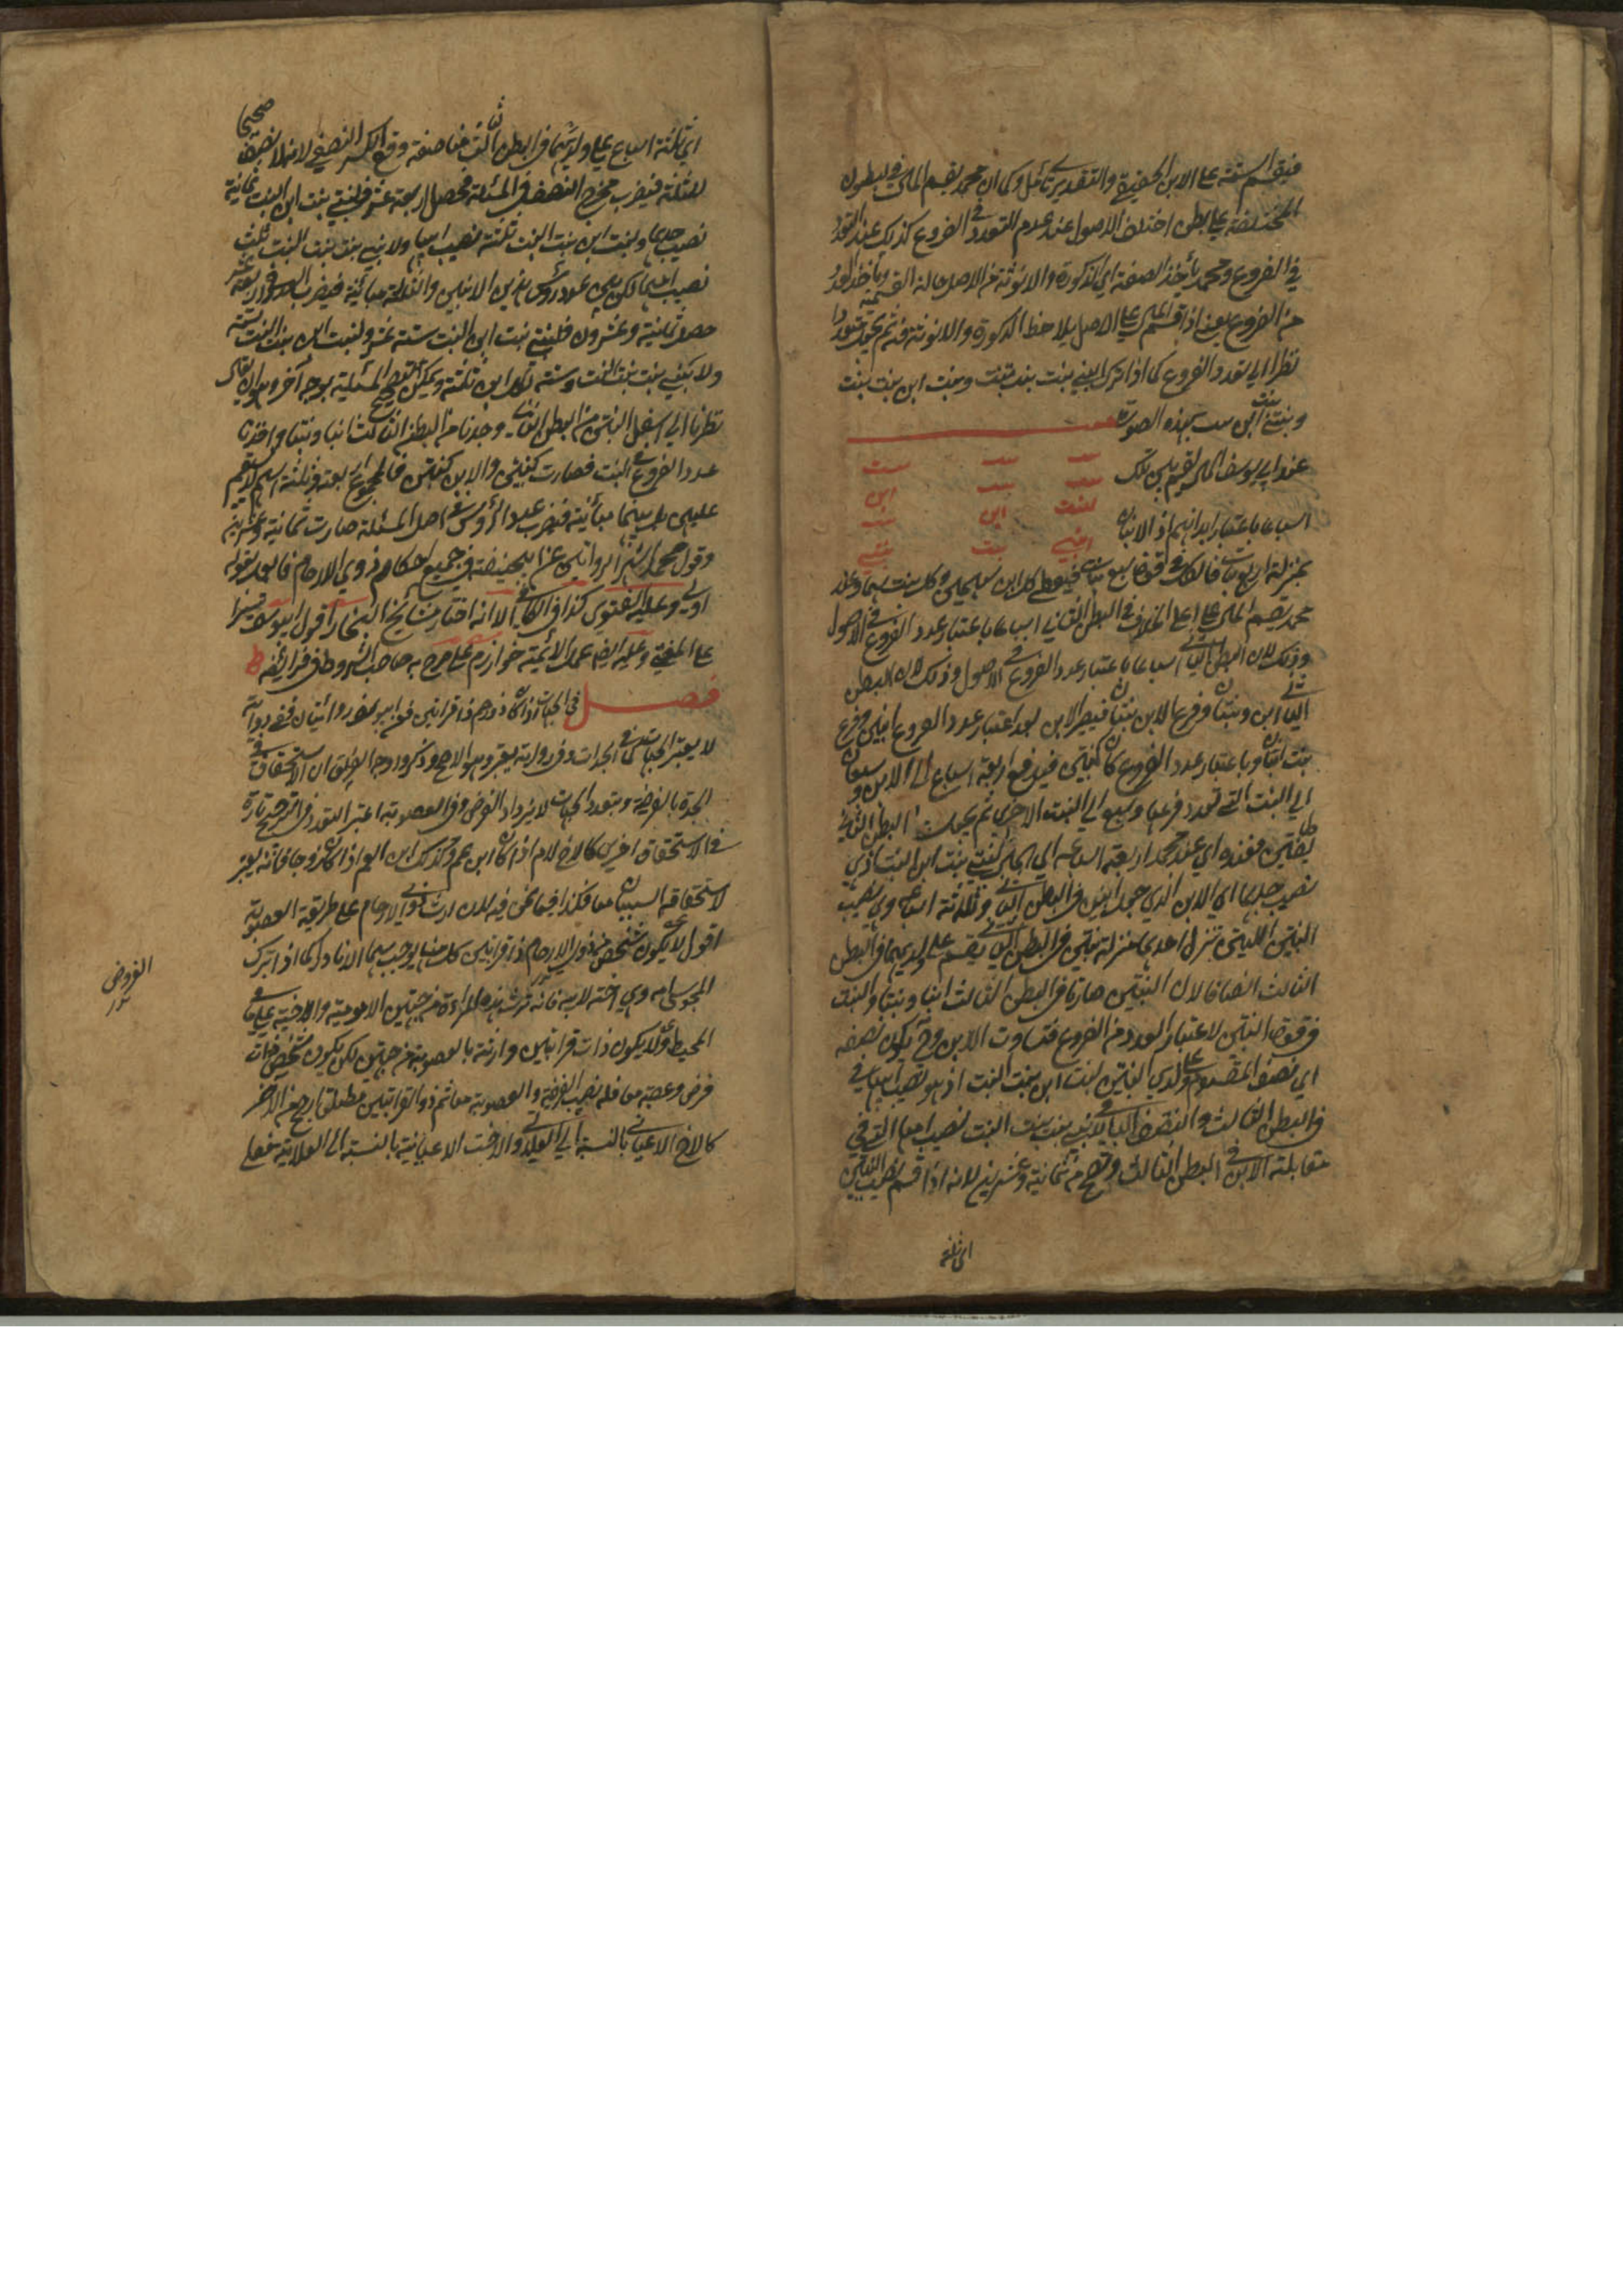 فيقسم الستة على الابن الحقيقي والتقديري تأمل وكما ان محمد يقسم المال في البطون
المختلفة على بطن اختلف الاصول عند عدم التعدد في الفروع كذلك عند التعدد
في الفروع ومحمد يأخذ الصفة اي الذكورة والانوثة من الاصل حالة القسمة ويأخذ العدد
من الفروع يعني اذا قسم المال على الاصل يلاحظ الذكورة والانوثة فيه ثم يجعل متعددا
نظرا الى تعدد الفروع كما اذا ترك ابني بنت بنت بنت وبنت ابن بنت بنت
وبنتي بنت ابن بنت بهذه الصورة
عند ابي يوسف المال يقسم بين تلك
بنت ابن
بنت ابن بنت
ابني بنت بنتي
اسباعا باعتبار ابدانهم اذ الابنان
بمنزلة اربع بنات فالكل في قوة سبع بنات فيعطى لكل ابن سهمان ولكل بنت سهم وعند
محمد يقسم المال على اعلى الخلاف في البطن الثاني اسباعا باعتبار عدد الفروع في الاصول
وذلك لان البطن الثاني اسباعا باعتبار عدد الفروع في الاصول وذلك لان البطن
الثاني ابن وبنتان وفرع الابن بنتان فيصير الابن بعد اعتبار عدد الفروع ابنين وفرع
بنت ابنان وباعتبار عدد الفروع كان كبنتين فيدفع اربعة اسباع الى الابن وسبعان
الى البنت التي تعدد فرعها وسبع الى البنت الاخرى ثم يجعل البطن الثاني
طائفتين فعنده اي عند محمد اربعة اسباعه اي المال لبنتي بنت ابن البنت اذ هي
نصيب جدهما اي الابن الذي جعل ابنين في البطن الثاني وثلثة اسباعه وهي نصيب
البنتين اللتين تنزل احديهما منزلة بنتين في البطن الثاني يقسم على ولديهما في البطن
الثالث انصافا لان البنتين صارتا في البطن الثالث ابنا وبنتا والبنت
في قوة البنتين لاعتبار العدد من الفروع فتساوت الابن وح يكون نصفه
اي نصف المقسوم على ولدي البنتين لبنت ابن بنت البنت اذ هو نصيب ابيها في
في البطن الثالث والنصف الباقي لابني بنت بنت البنت نصيب امهما التي في
مقابلة الابن في البطن الثالث وتصح من ثمانية وعشرين لانه اذا قسم نصيب البنتين
اي ثلثة
اي ثلثة اسباع على ولديهما في البطن الثالث مناصفة وقع الكسر النصفي لانه لا نصف صحيحا
للثلثة فيضرب مخرج النصف في المسئلة فحصل اربعة عشر فلبنتي بنت ابن البنت ثمانية
نصيب جدهما ولبنت ابن بنت البنت ثلثة نصيب ابيها ولابني بنت بنت البنت ثلث
نصيب امهما لكن بين عدد رؤس هذين الابنين والثلثة مباينة فيضرب العدد في اربعة عشر
حصل ثمانية وعشرون فلبنتي بنت ابن البنت ستة عشر ولبنت ابن بنت البنت ستة
ولابني بنت بنت البنت ستة لكل ابن ثلثة ويمكن تصحيح المسئلة بوجه آخر وهو ان يقال
نظرنا الى اسفل البنتين من البطن الثاني وجدنا من البطن الثالث ابنا وبنتا واخذنا
عدد الفروع في البنت فصارت كبنتين والابن كبنتين فالمجموع اربعة فثلثة اسهم لا يستقيم
عليهن بل بينهما مباينة فضرب عدد الرؤس في اصل المسئلة صارت ثمانية وعشرين
وقول محمد اشهر الروايتين عن ابي حنيفة في جميع احكام ذوي الارحام فالعمل بقوله
اولى وعليه الفتوى كذا في الكافي الا انه اختار مشايخ البخارا قول ابي يوسف تيسيرا
على المفتي وعليه ايضا عمل الائمة خوارزم على ما صرح به صاحب الشروط في فرائضه
فصل في الجهات اذا كان ذو رحم ذا قرابتين فعن ابي يوسف روايتان ففي رواية
لا يعتبر الجهات كما في الجدات وفي رواية يعتبر وهو الاصح وذكروا وجه الفرق ان الاستحقاق في
الجدة بالفرضية وبتعدد الجهات لا يزداد الفرض وفي العصوبة اعتبر التعدد في الترجيح تارة
في الاستحقاق اخرى كالاخ لام اذا كان ابن عم وكذلك ابن العم اذا كان زوجا فانه يعتبر
لاستحقاقه السببان معا فكذا فيما نحن فيه لان ارث ذوي الارحام على طريقة العصوبة
اقول لا يكون شخص من ذوي الارحام ذا قرابتين كل منهما يوجب سهما الا نادرا كما اذا ترك
المجوسي امه وهي اخته لابيه فانه ترث هذه المرأة من جهتين الامومية والاختية على ما في
المحيط ولا يكون ذات قرابتين وارثة بالعصوبة من جهتين لكن يكون شخص ذات
فرض وعصبة معا فله نصيب الفرضية والعصوبة معا ثم ذو القرابتين مطلقا ارجح من الاخر
كالاخ الاعياني بالنسبة الى العلاتي والاخت الاعيانية بالنسبة الى العلاتية فعلى
الفروض